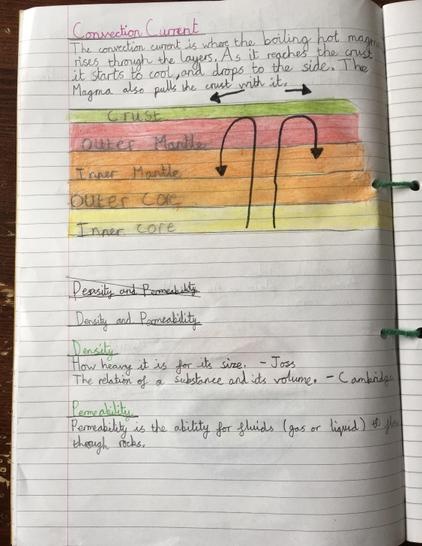 Convection Current
The convection current is where the boiling hot magma
rises through the layers. As it reaches the crust
it starts to cool, and drops to the side. The
Magma also pulls the crust with it.
Crust
Outer Mantle
Inner Mantle
Outer Core
Inner Core
Density and Permeability
Density
How heavy it is for its size. - Joss
The relation of a substance and its volume. - Cambridge
Permeability
Permeability is the ability for fluids (gas or liquid) to
through rocks.